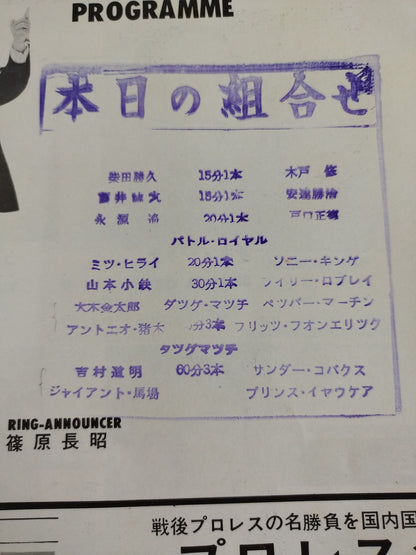 PROGRAMME
本日の組合せ
袋田勝久 15分1本 木戸 修
藤井誠之 15分1本 安達勝治
永源 遙 20分1本 戸口正徳
バトル・ロイヤル
ミツ・ヒライ 20分1本 ソニー・キング
山本小鉄 30分1本 ロブレイ
大木金太郎 ダツグ・マツチ ペツパー・マーチン
アントニオ・猪木 分3本 フリッツ・フオンエリツク
タツグマツチ
吉村道明 60分3本 サンダー・コバクス
ジャイアント・馬場 プリンス・イヤウケア
RING-ANNOUNCER
篠原長昭
戦後プロレスの名勝負を国内国
プロレス